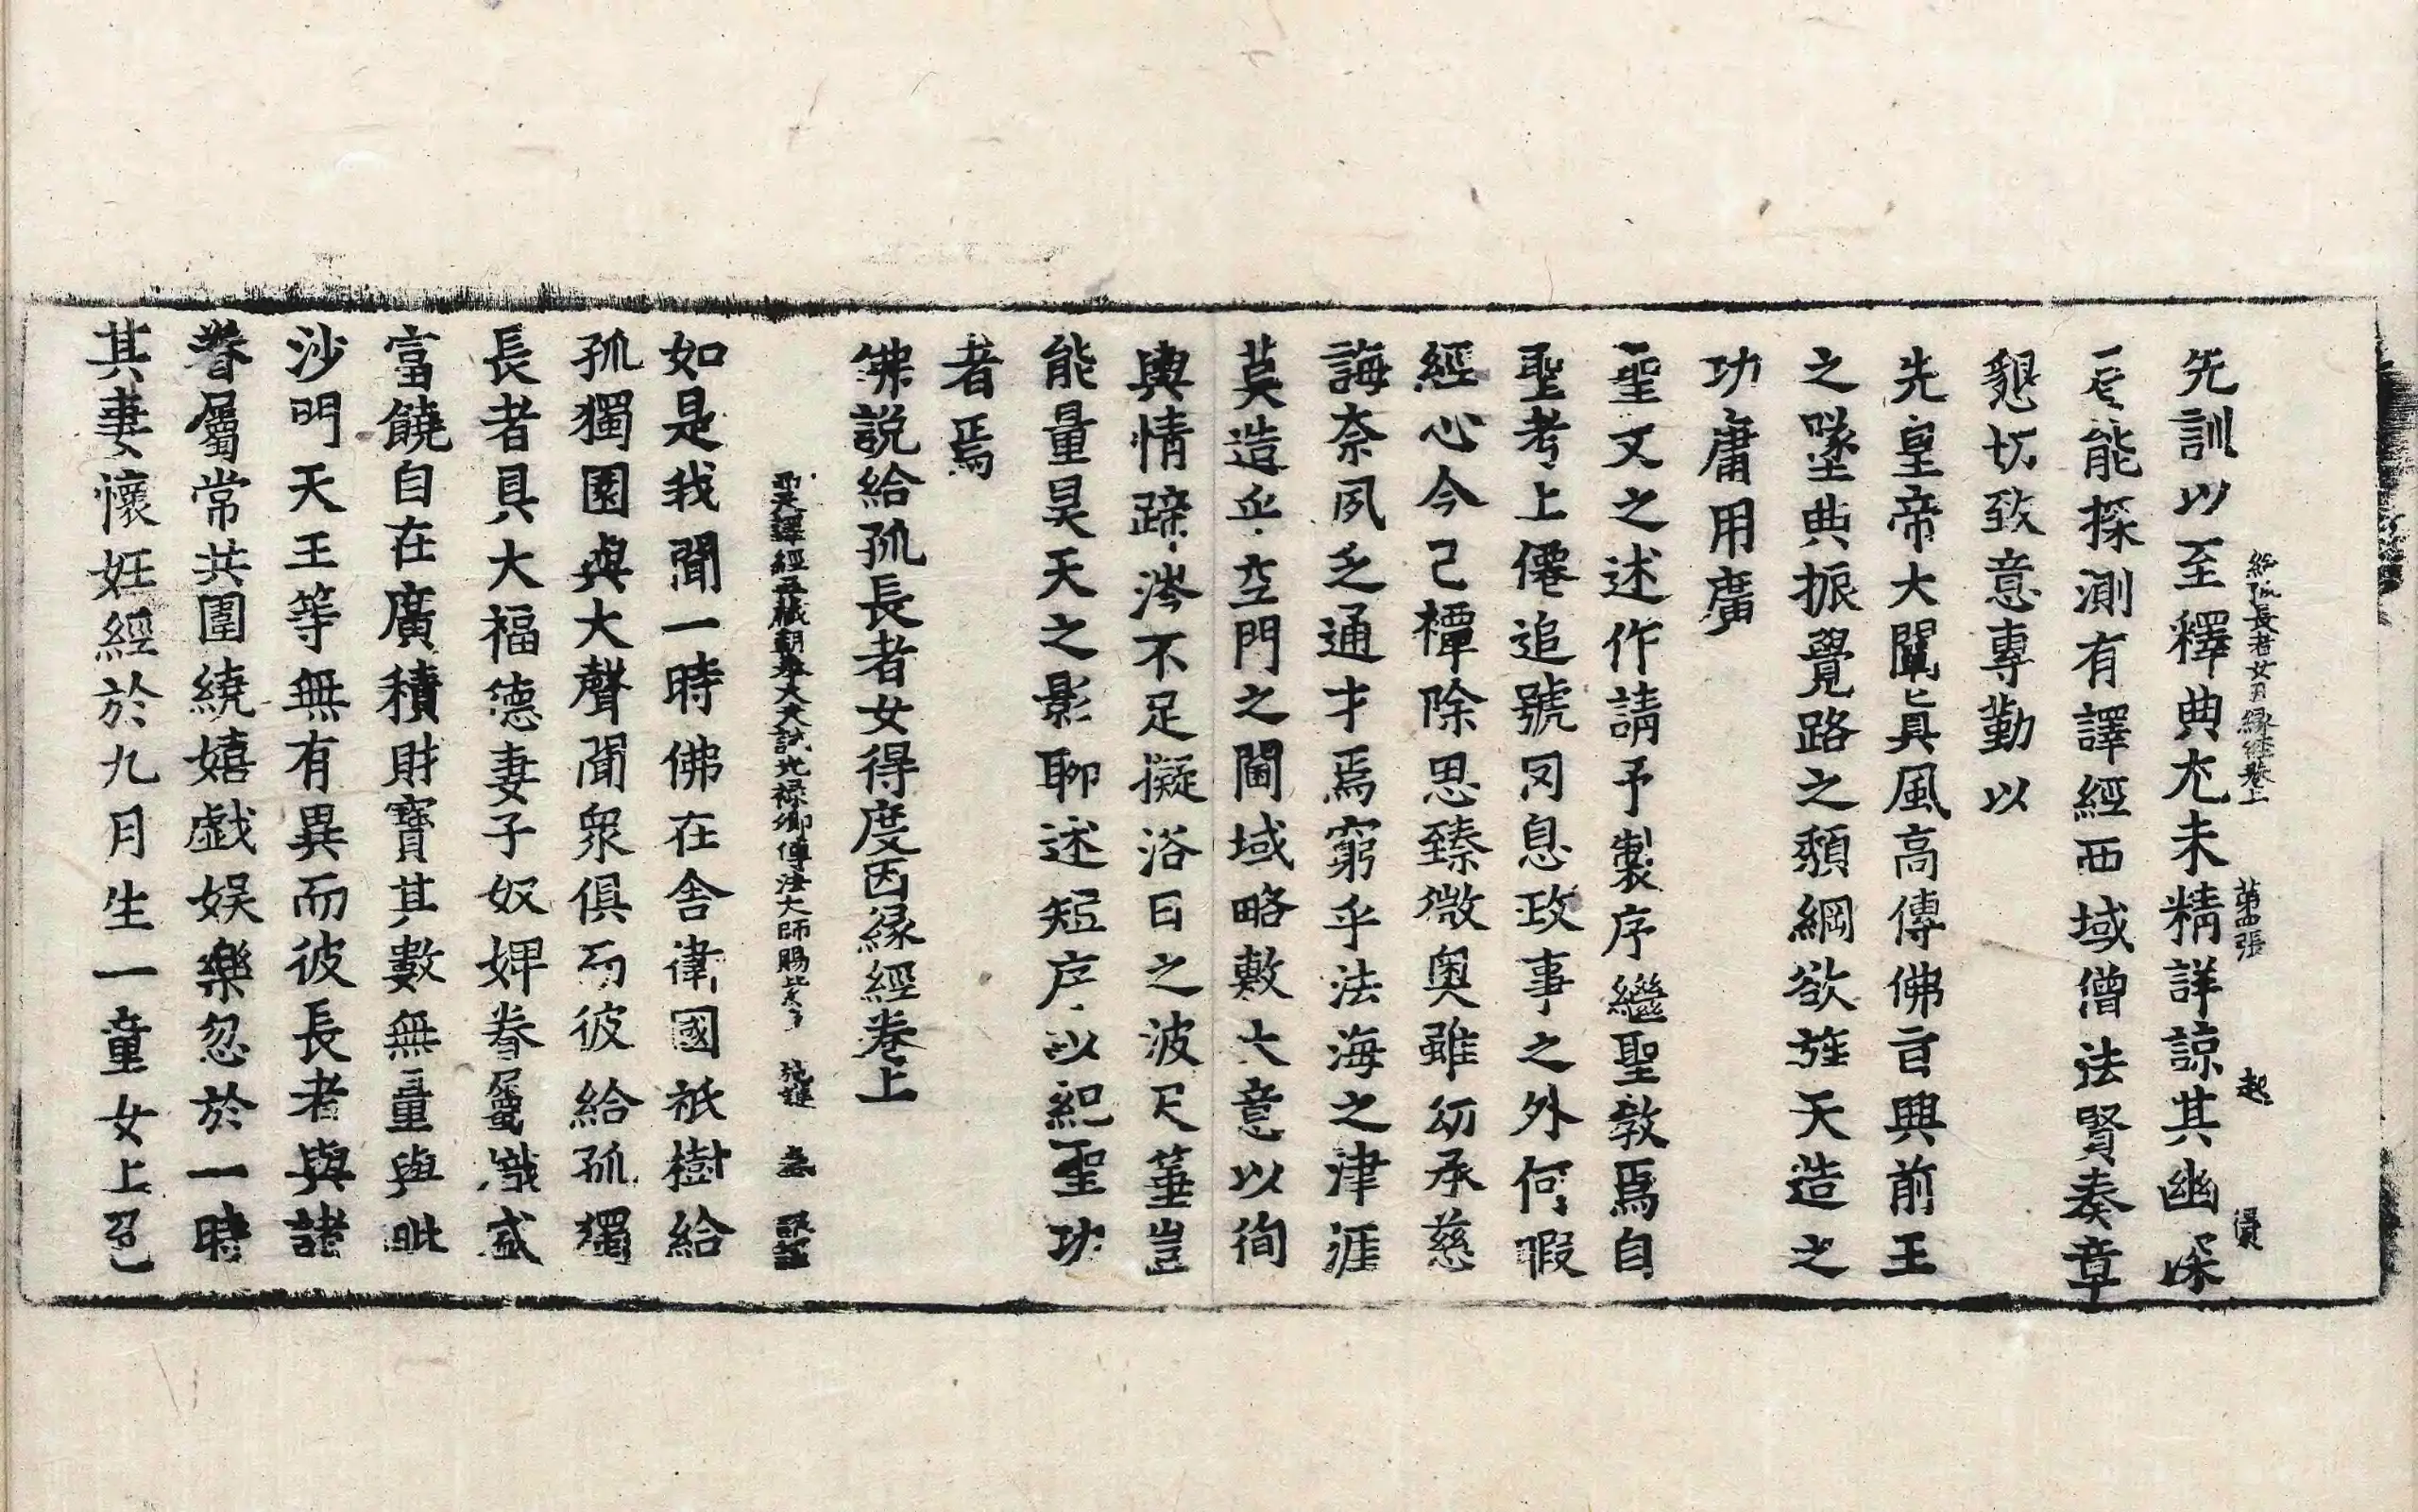 給孤長者女因縁經卷上 第四張 起
先訓以至釋典尤未精詳諒其幽深
能探測有譯經西域僧法賢奏章
懇切致意專勤以
先皇帝大闡真風高傳佛旨興前王
之墜典振覺路之頽綱欲旌天造之
功庸用廣
聖文之述作請予製序繼聖教焉自
聖考上僊追號罔息政事之外何暇
經心今已禫除思臻微奥雖幼承慈
誨奈夙乏通才焉窮乎法海之津涯
莫造乎空門之閫域略敷大意以徇
輿情蹄涔不足擬浴日之波尺箠豈
能量昊天之影聊述短序以紀聖功
者焉
佛説給孤長者女得度因縁經卷上
西天譯經三藏朝奉大夫試光禄卿傳法大師賜紫 施護 奉 詔譯
如是我聞一時佛在舍衛國祇樹給
孤獨園與大聲聞衆俱而彼給孤獨
長者具大福德妻子奴婢眷屬熾盛
富饒自在廣積財寶其數無量與毗
沙門天王等無有異而彼長者與諸
眷屬常共圍繞嬉戯娱樂忽於一時
其妻懷妊經於九月生一童女上色